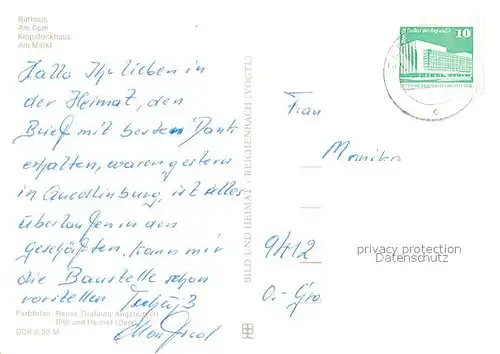 Rathaus
Am Dom
Klopstockhaus
Am Markt
Hallo Ihr lieben in
der Heimat, den
Brief mit besten Dank
erhalten, waren gestern
in Quedlinburg, ist alles
überlaufen in den
Geschäften. Kann mir
die Baustelle schon
vorstellen Tschüß
Manfred
Farbfotos: Reinst, Gräfenau-Angstedt (1)
Bild und Heimat (Dart)
DDR 0,20 M
BILD UND HEIMAT · REICHENBACH (VOGTL)
10
Palast der Republik
c
Frau
Monika
9412
privacy protection
Datenschutz